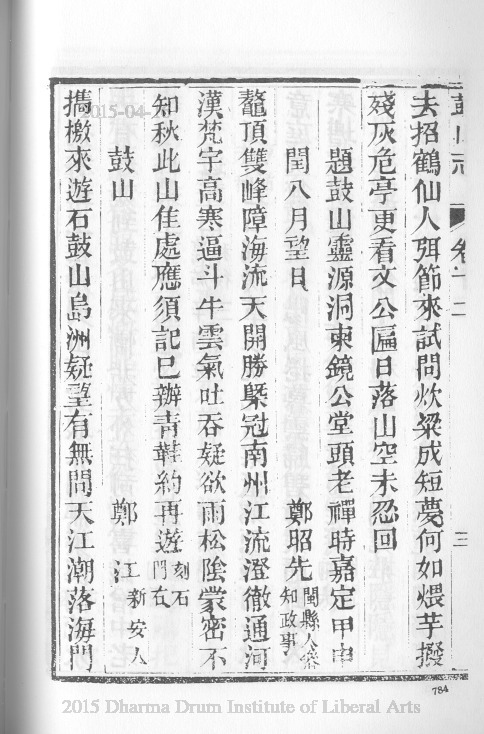 鼓山志 卷十二 三
去招鶴仙人弭節來試問炊粱成短夢何如煨芋撥
殘灰危亭更看文公匾日落山空未忍回
題鼓山靈源洞柬鏡公堂頭老禪時嘉定甲申
閏八月望日 鄭昭先 閩縣人叅知政事
鼇頂雙峰障海流天開勝槩冠南州江流澄徹通河
漢梵宇高寒逼斗牛雲氣吐吞疑欲雨松陰蒙密不
知秋此山佳處應須記已辦青鞋約再遊 刻石門右
鼓山 鄭 江 新安人
攜檄來遊石鼓山島洲疑望有無間天江潮落海門
784
2015-04-
2015 Dharma Drum Institute of Liberal Arts